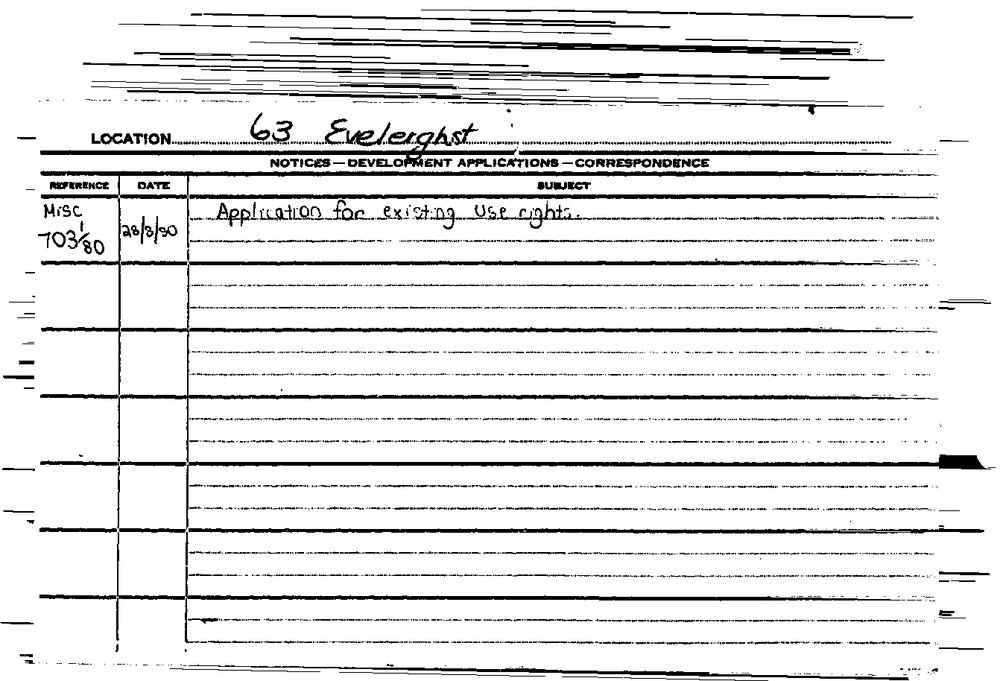 LOCATION 63 Eveleigh st
NOTICES—DEVELOPMENT APPLICATIONS—CORRESPONDENCE
REFERENCE DATE SUBJECT
Misc 28/8/80 Application for existing use rights.
703/80